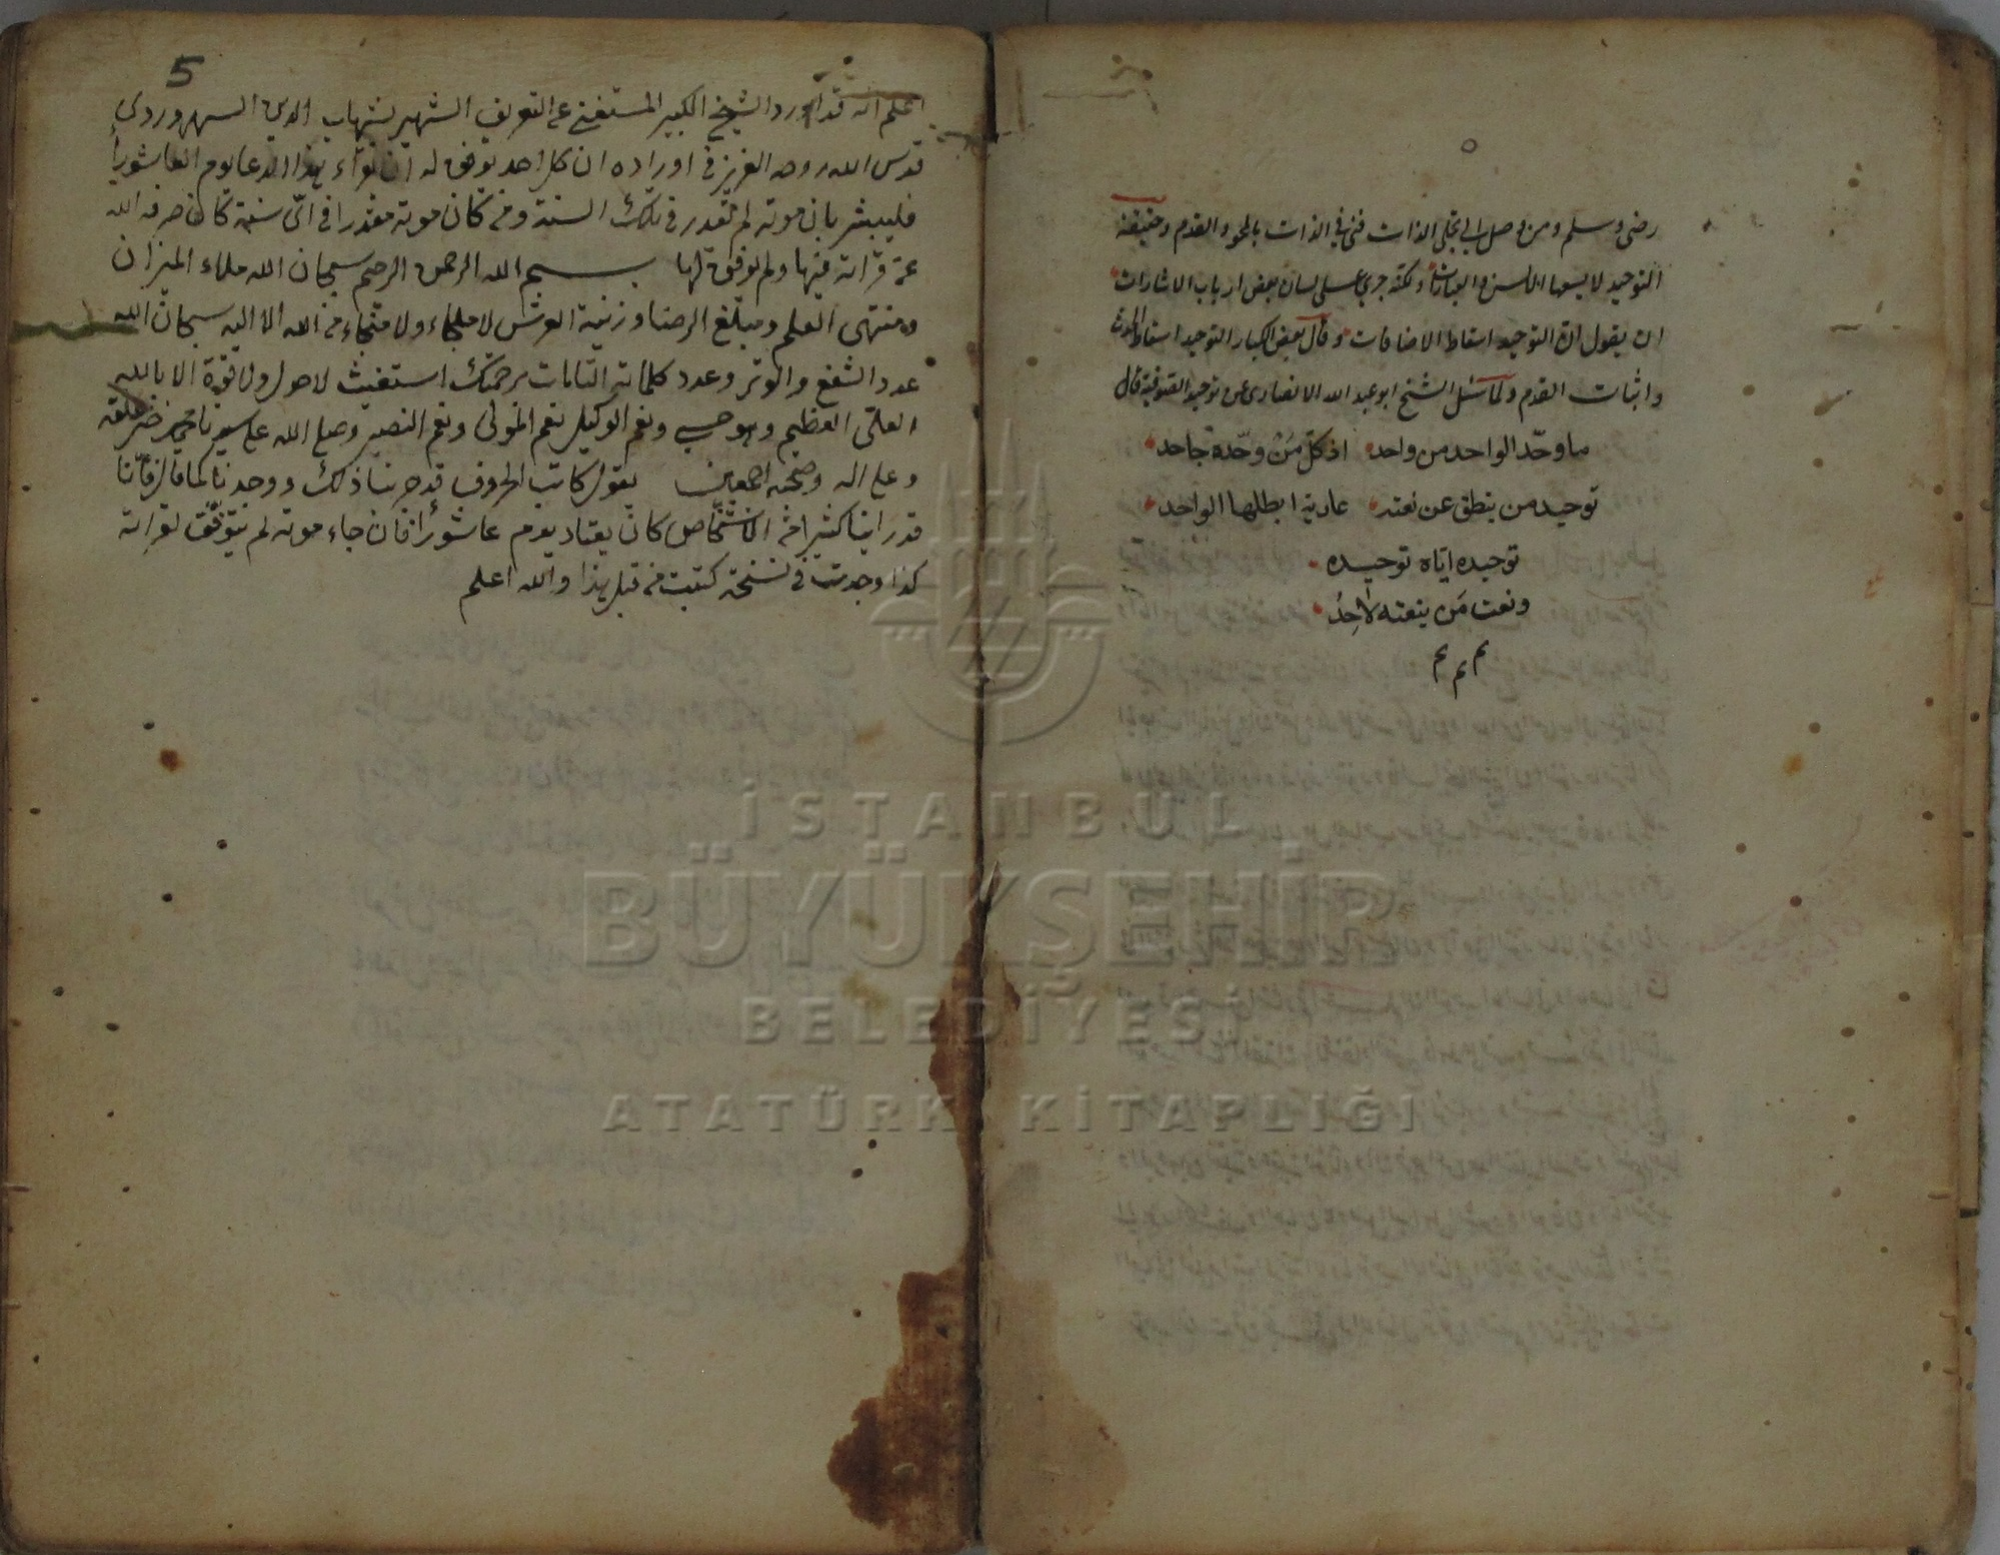 رضى وسلم ومن وصل الى تجلى الذات فنى فى الذات بالمحو والقدم وحقيقة
التوحيد لا يسعها الالسن والعبارات ولكنه جرى على لسان بعض ارباب الاشارات
ان يقول ان التوحيد اسقاط الاضافات وقال بعض الكبار التوحيد اسقاط الحدث
واثبات القدم ولما سئل الشيخ ابو عبد الله الانصارى عن توحيد الصوفية قال
ما وحّد الواحد من واحد اذ كلّ مَنْ وحّده جاحد
توحيد من ينطق عن نعته عارية ابطلها الواحد
توحيده ايّاه توحيده
ونعت مَن ينعته لاحِدُ
م م م
5
اعلم انه قد اورد الشيخ الكبير المستغنى عن التعريف الشهير بشهاب الدين السهروردى
قدس الله روحه العزيز فى اوراده ان كل احد توفق له ان قراء هذا الدعا يوم العاشورا
فليبشر بان موته لم تقدر فى تلك السنة ومن كان موته مقدرا فى اىّ سنة كان صرفه الله
عن قرائة فيها ولم يوفق لها بسم الله الرحمن الرحيم سبحان الله ملاء الميزان
ومنتهى العلم ومبلغ الرضا وزينة العرش لا ملجاء ولا منجاء من الله الا اليه سبحان الله
عدد الشفع والوتر وعدد كلماته التامات برحمتك استغيث لا حول ولا قوة الا بالله
العلى العظيم وهو حسبى ونعم الوكيل نعم المولى ونعم النصير وصلى الله على سيدنا محمد خير خلقه
وعلى اله وصحبه اجمعين يقول كاتب الحروف قد جربنا ذلك ووجدنا كما قال فانّا
قد راينا كثيرا من الاشخاص كان يعتاد يوم عاشورا فان جاء موته لم يتوفّق لقرائة
كذا وجدت فى نسخة كتبت من قبل هذا والله اعلم
İSTANBUL
BÜYÜKŞEHİR
BELEDİYESİ
ATATÜRK KİTAPLIĞI